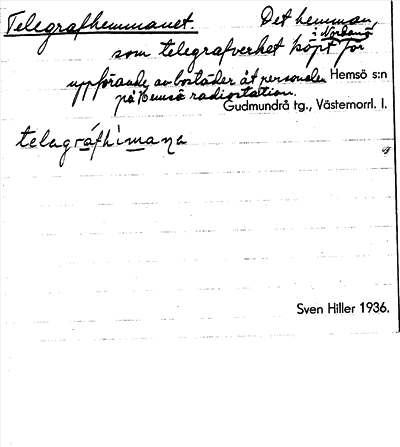 Telegrafhemmanet. Det hemman,
i Nordanö
som telegrafverket köpt för
uppförande av bostäder åt personalen Hemsö s:n
på Hemsö radiostation.
Gudmundrå tg., Västernorrl. l.
telegráfhìmana
Sven Hiller 1936.